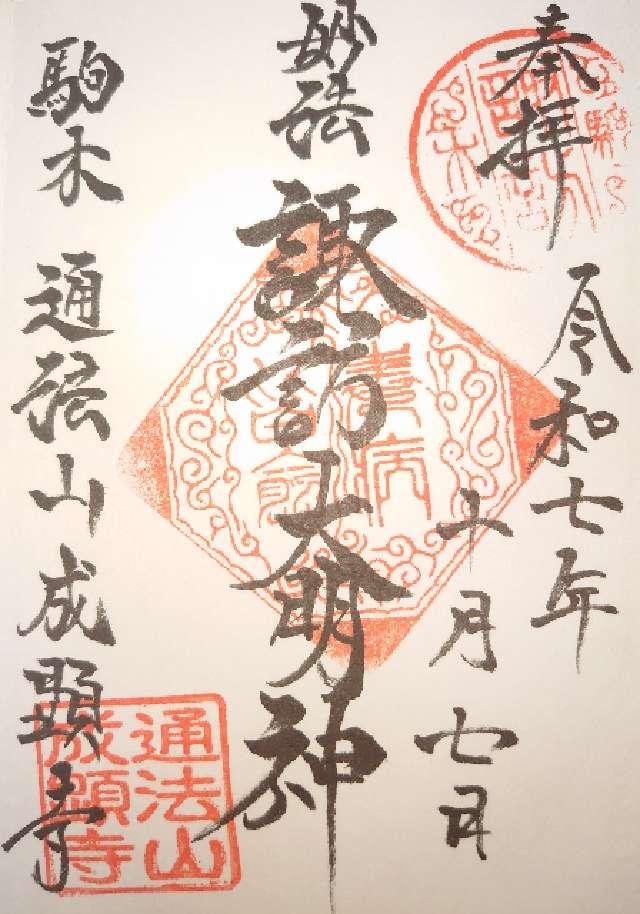 奉拝
令和七年
十月七日
妙法
諏訪大明神
駒木 通法山成顕寺
通法山
成顕寺